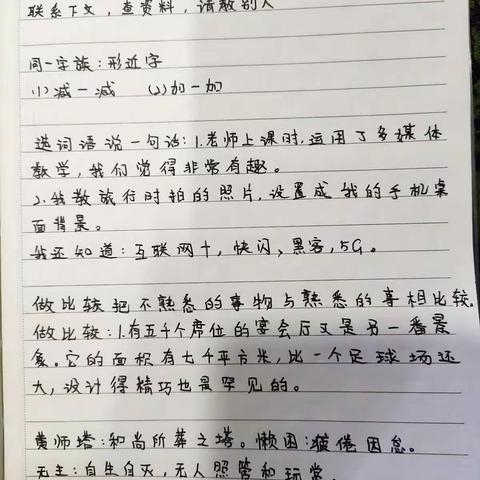 联系下文，查资料，请教别人
同一字族：形近字
(1)减一减 (2)加一加
选词语说一句话：1.老师上课时，运用了多媒体
教学，我们觉得非常有趣。
2.我教旅行时拍的照片，设置成我的手机桌
面背景。
我还知道：互联网+，快闪，黑客，5G。
做比较把不熟悉的事物与熟悉的事相比较.
做比较：1.有五千个席位的宴会厅又是另一番景
象。它的面积有七千平方米，比一个足球场还
大，设计得精巧也是罕见的。
黄师塔：和尚所葬之塔。懒困：疲倦困怠。
无主：自生自灭，无人照管和玩赏。